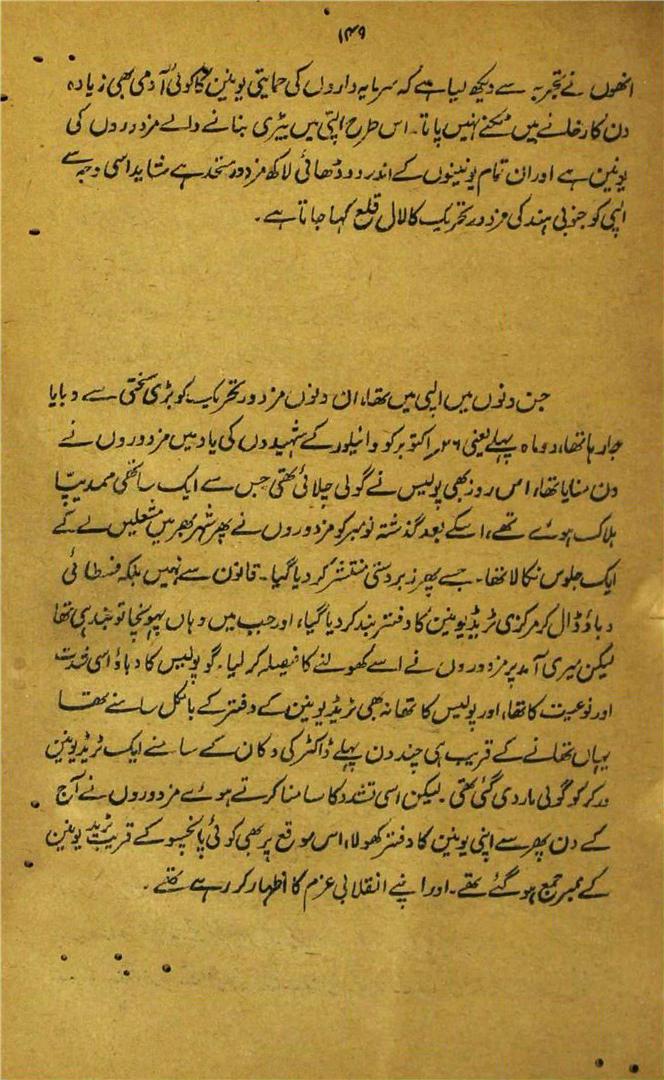 ۱۴۹
انھوں نے تجربہ سے دیکھ لیا ہے کہ سرمایہ داروں کی حمایتی یونین کا کوئی آدمی بھی زیادہ
دن کارخانے میں ٹکنے نہیں پاتا۔ اس طرح الپی میں بیڑی بنانے والے مزدوروں کی
یونین ہے اور ان تمام یونینوں کے اندر دو ڈھائی لاکھ مزدور متحد ہے شاید اسی وجہ سے
الپی کو جنوبی ہند کی مزدور تحریک کا لال قلع کہا جاتا ہے۔
جن دنوں میں الپی میں تھا، ان دنوں مزدور تحریک کو بڑی سختی سے دبایا
جا رہا تھا، دو ماہ پہلے یعنی ۲۶ اکتوبر کو وائیلور کے شہیدوں کی یاد میں مزدوروں نے
دن منایا تھا، اس روز بھی پولیس نے گولی چلائی تھی جس سے ایک ساتھی
ہلاک ہوئے تھے، اسکے بعد گذشتہ نومبر کو مزدوروں نے پھر شہر بھر میں مشعلیں لے کے
ایک جلوس نکالا تھا۔ جسے پھر زبردستی منتشر کر دیا گیا۔ قانون سے نہیں بلکہ فسطائی
دباؤ ڈال کر مرکزی ٹریڈ یونین کا دفتر بند کر دیا گیا، اور جب میں وہاں پہونچا تو بند ہی تھا
لیکن میری آمد پر مزدوروں نے اسے کھولنے کا فیصلہ کر لیا۔ گو پولیس کا دباؤ اسی شدت
اور نوعیت کا تھا، اور پولیس کا تھانہ بھی ٹریڈ یونین کے دفتر کے بالکل سامنے تھا
یہاں تھانے کے قریب ہی چند دن پہلے ڈاکٹر کی دکان کے سامنے ایک ٹریڈ یونین
ورکر کو گولی مار دی گئی تھی۔ لیکن اسی تشدد کا سامنا کرتے ہوئے مزدوروں نے آج
کے دن پھر سے اپنی یونین کا دفتر کھولا، اس موقع پر بھی کوئی پانچسو کے قریب ٹریڈ یونین
کے ممبر جمع ہو گئے تھے۔ اور اپنے انقلابی عزم کا اظہار کر رہے تھے۔